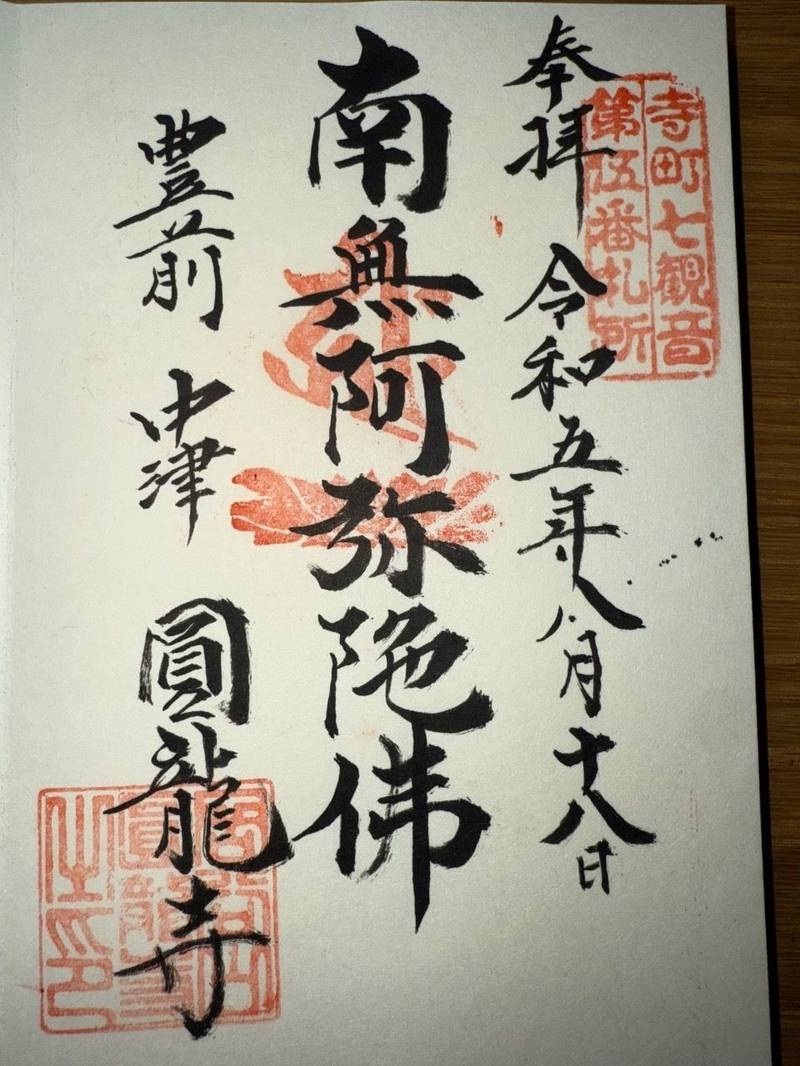 寺町七観音
第伍番札所
奉拝 令和五年八月十八日
南無阿弥陀佛
豊前 中津 圓龍寺